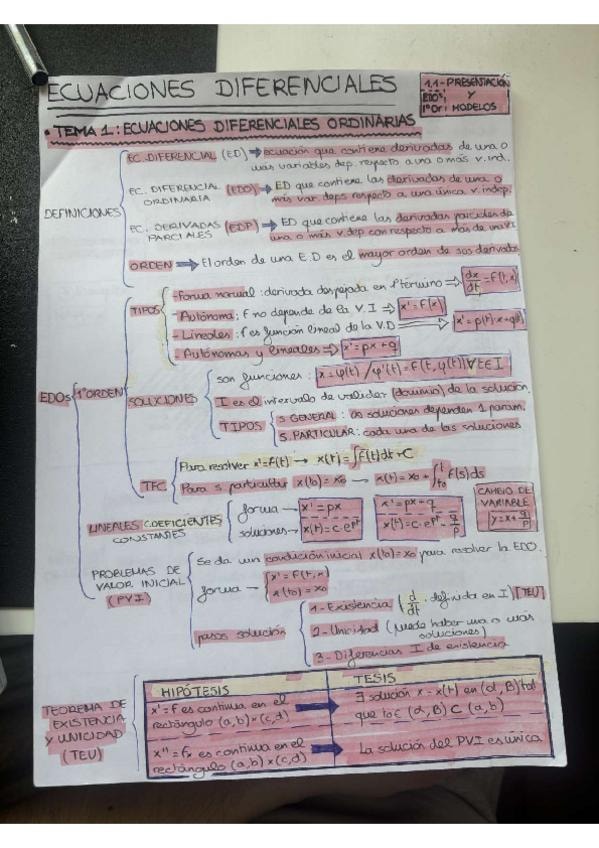 ECUACIONES DIFERENCIALES
1.1- PRESENTACIÓN
EDO's Y
1º Or: MODELOS
• TEMA 1: ECUACIONES DIFERENCIALES ORDINARIAS
DEFINICIONES
EC. DIFERENCIAL (ED) ⇒ Ecuación que contiene derivadas de una o
más variables dep. respecto a una o más v. ind.
EC. DIFERENCIAL ORDINARIA (EDO) ⇒ ED que contiene las derivadas de una o
más var. deps respecto a una única v. indep.
EC. DERIVADAS PARCIALES (EDP) → ED que contiene las derivadas parciales de
una o más v. dep con respecto a más de una V.I
ORDEN ⇒ El orden de una E.D es el mayor orden de sus derivadas
EDOs 1º ORDEN
TIPOS
- Forma normal: derivada despejada en 1º término ⇒ dx/dt = f(t,x)
- Autónoma: f no depende de la V.I ⇒ x' = f(x)
- Lineales: f es función lineal de la V.D ⇒ x' = p(t)·x+q(t)
- Autónomas y lineales ⇒ x' = px + q
SOLUCIONES
son funciones: x = φ(t) / φ'(t) = f(t, φ(t)) ∀t∈I
I es el intervalo de validez (dominio) de la solución.
TIPOS
S. GENERAL: las soluciones dependen 1 param.
S. PARTICULAR: cada una de las soluciones
TFC
Para resolver x' = f(t) → x(t) = ∫f(t)dt + C
Para s. particular x(t0) = x0 → x(t) = x0 + ∫t0^t f(s)ds
LINEALES COEFICIENTES CONSTANTES
forma → x' = px
x' = px + q
soluciones → x(t) = c·e^pt
x(t) = c·e^pt - q/p
CAMBIO DE
VARIABLE
y = x + q/p
PROBLEMAS DE
VALOR INICIAL
(PVI)
Se da una condición inicial x(t0) = x0 para resolver la EDO.
forma → x' = f(t,x)
x(t0) = x0
pasos solución
1- Existencia (d/dt definida en I) [TEU]
2- Unicidad (puede haber una o más
soluciones)
3- Diferencias I de existencia
TEOREMA DE
EXISTENCIA
Y UNICIDAD
(TEU)
HIPÓTESIS
TESIS
x' = f es continua en el
rectángulo (a,b)×(c,d)
∃ solución x = x(t) en (α,β) tal
que t0 ∈ (α,β) ⊂ (a,b)
x'' = fx es continua en el
rectángulo (a,b)×(c,d)
La solución del PVI es única